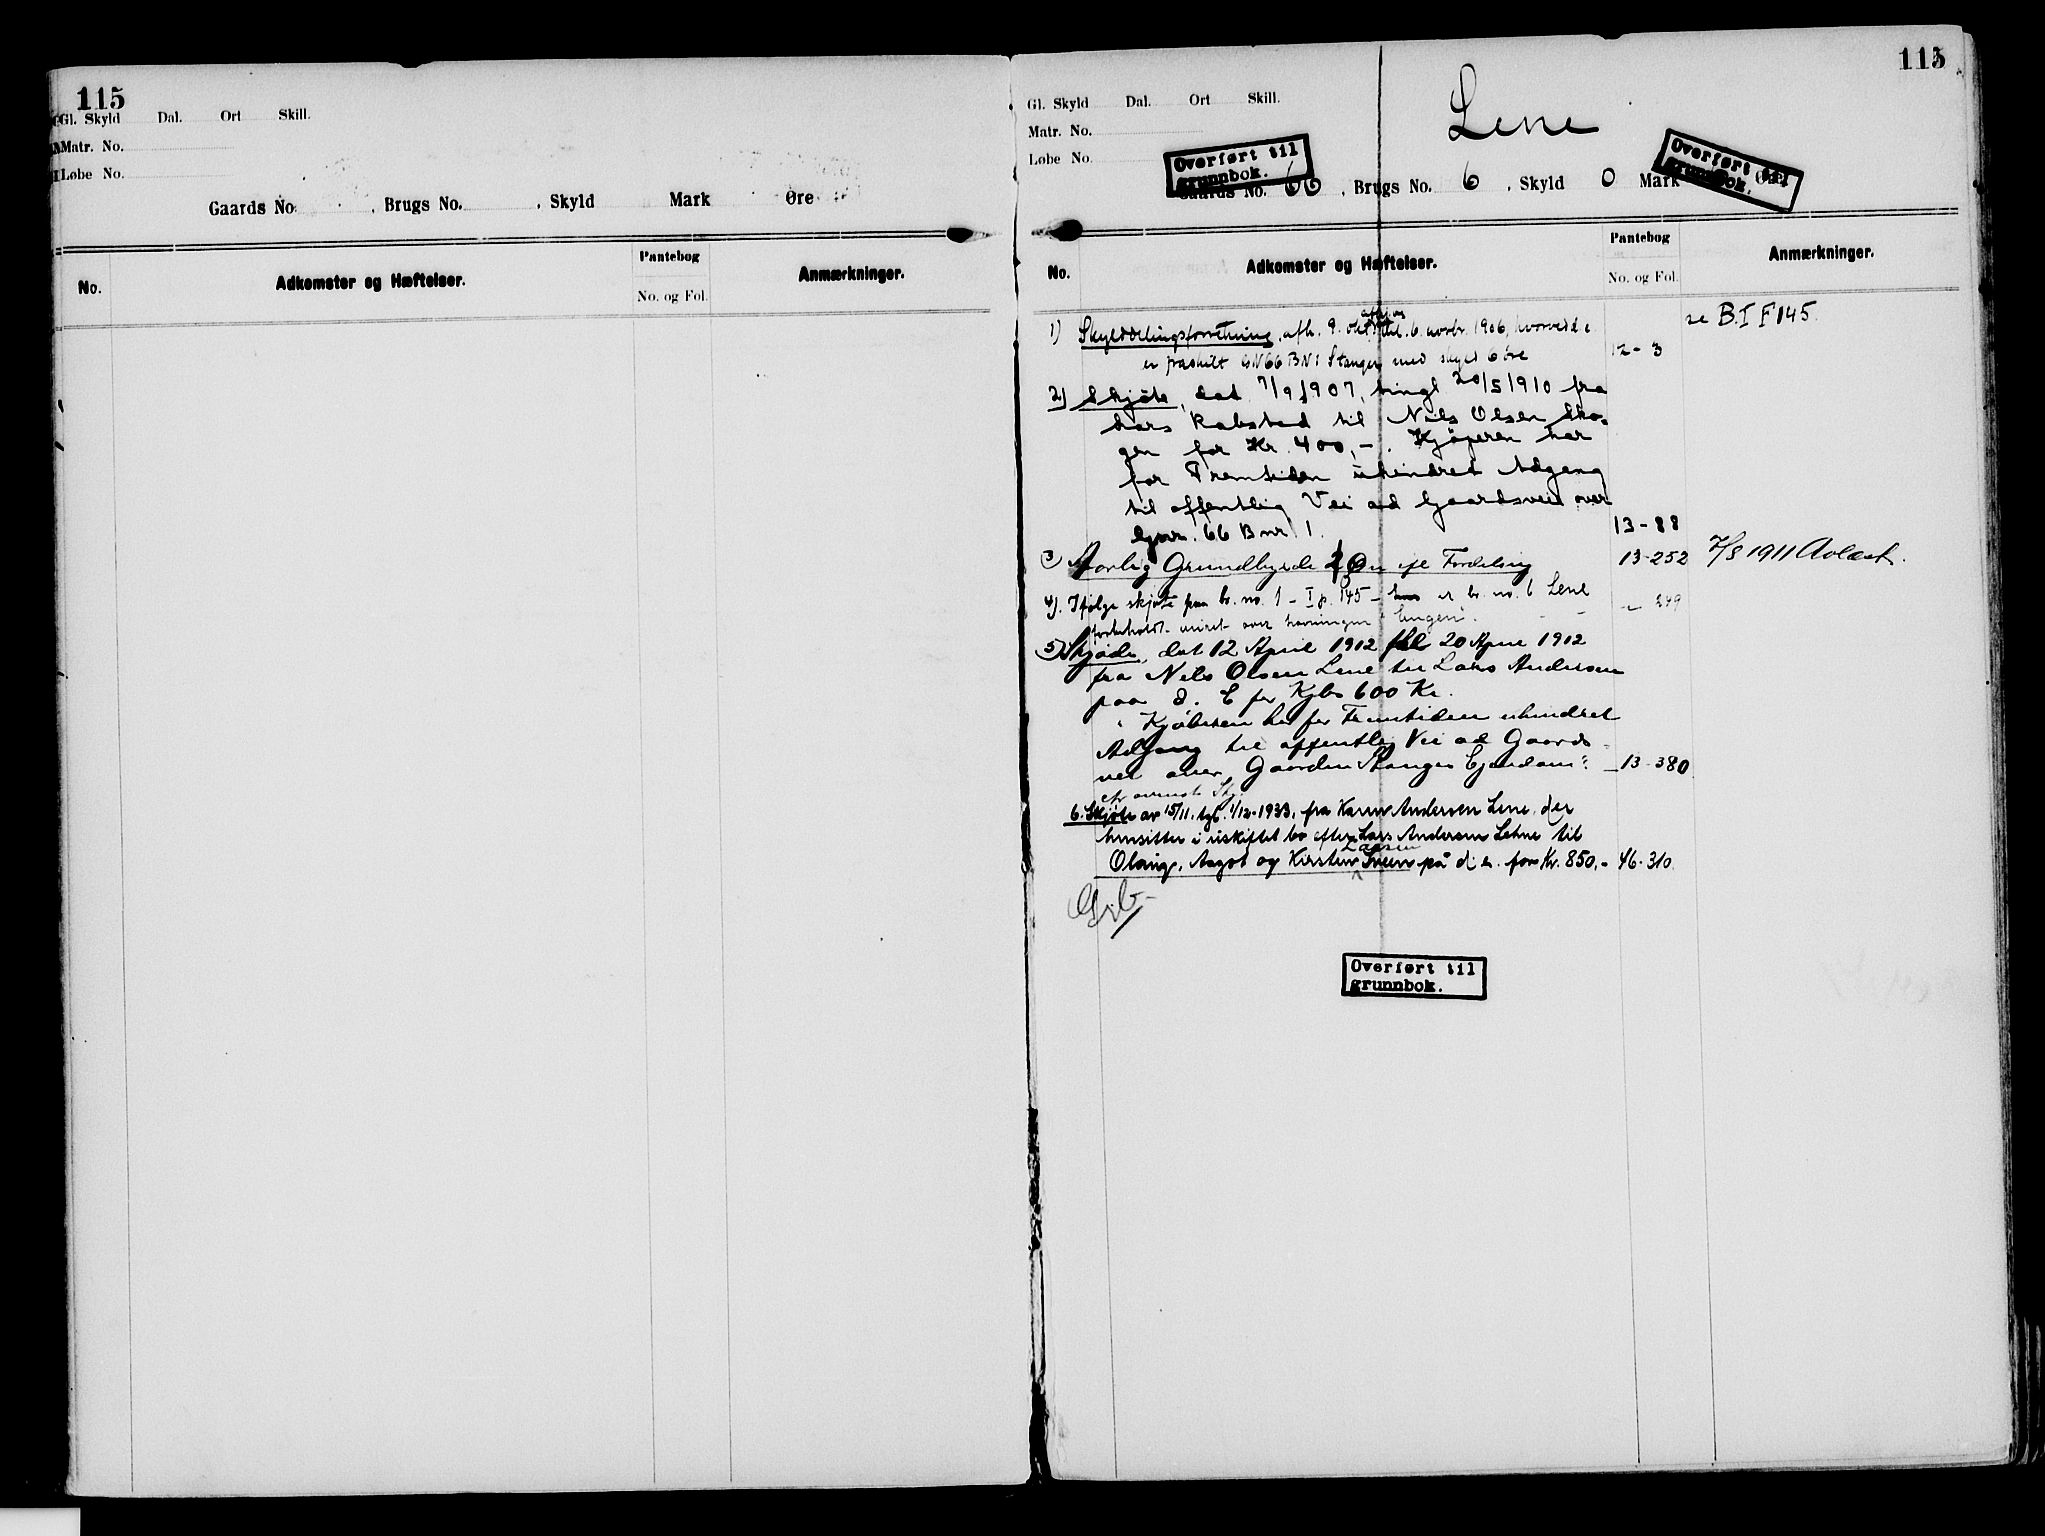 115
Gl. Skyld Dal. Ort Skill.
Matr. No.
Løbe No.
Gaards No. , Brugs No. , Skyld Mark Øre
No. Adkomster og Hæftelser. Pantebog No. og Fol. Anmærkninger.
115
Gl. Skyld Dal. Ort Skill.
Matr. No.
Løbe No.
Lene
Overført til grunnbok.
Overført til grunnbok.
Gaards No. 66, Brugs No. 6, Skyld 0 Mark
No. Adkomster og Hæftelser. Pantebog No. og Fol. Anmærkninger.
1) Skylddelingsforretning, afh. 9. okt. 6. novbr. 1906, hvorved d. e. se B.I F 145.
er fraskilt GN 66 BN 1 Stanger med skyld 6 øre 12-3
2) Skjøte, dat. 7/9 1907, tingl 20/5 1910 fra
Lars Kabstad til Nils Olsen Sko-
gen for Kr. 400,-. Kjøperen har
for Fremtiden uhindret Adgang
til offentlig Vei ad Gaardsvei over
Gnr. 66 Bnr. 1. 13-88
3) Aarlig Grundbyrde 2 Øre ifl Fordeling 13-252 7/8 1911 Avlæst.
4). Ifølge skjøte paa br. no. 1 - I p. 145 - er br. no. 6 Lene - 249
forbeholdt over havningen "Engen".
5) Skjøde, dat 12 April 1912 tgl 20 April 1912
fra Nils Olsen Lene til Lars Andersen
paa d. E for Kjbs 600 Kr.
"Kjøberen har for Fremtiden uhindret
Adgang til offentlig Vei ad Gaards-
vei over Gaarden Stanger Ejendom" 13-380
Skj.
6. Skjøte av 15/11, tgl. 1/12-1933, fra Karen Andersen Lene, der
hensitter i uskiftet bo efter Lars Andersen Lehne til
Olaug, Aagot og Kirsten Larsen Sveen på d. e. for Kr. 850,- 46-310.
Overført til
grunnbok.